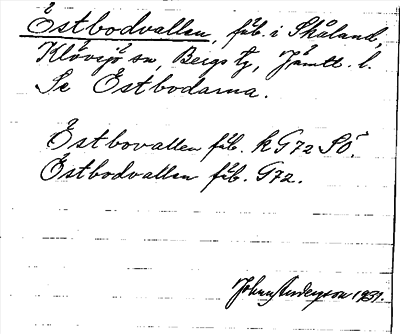 Östbodvallen, fäb. i Skåland,
Klövsjö sn, Bergs tg, Jämtl. l.
Se Östbodarna.
Östbovallen fäb. k G72 SÖ.
Östbodvallen fäb. G72.
John Anderzson 1931.